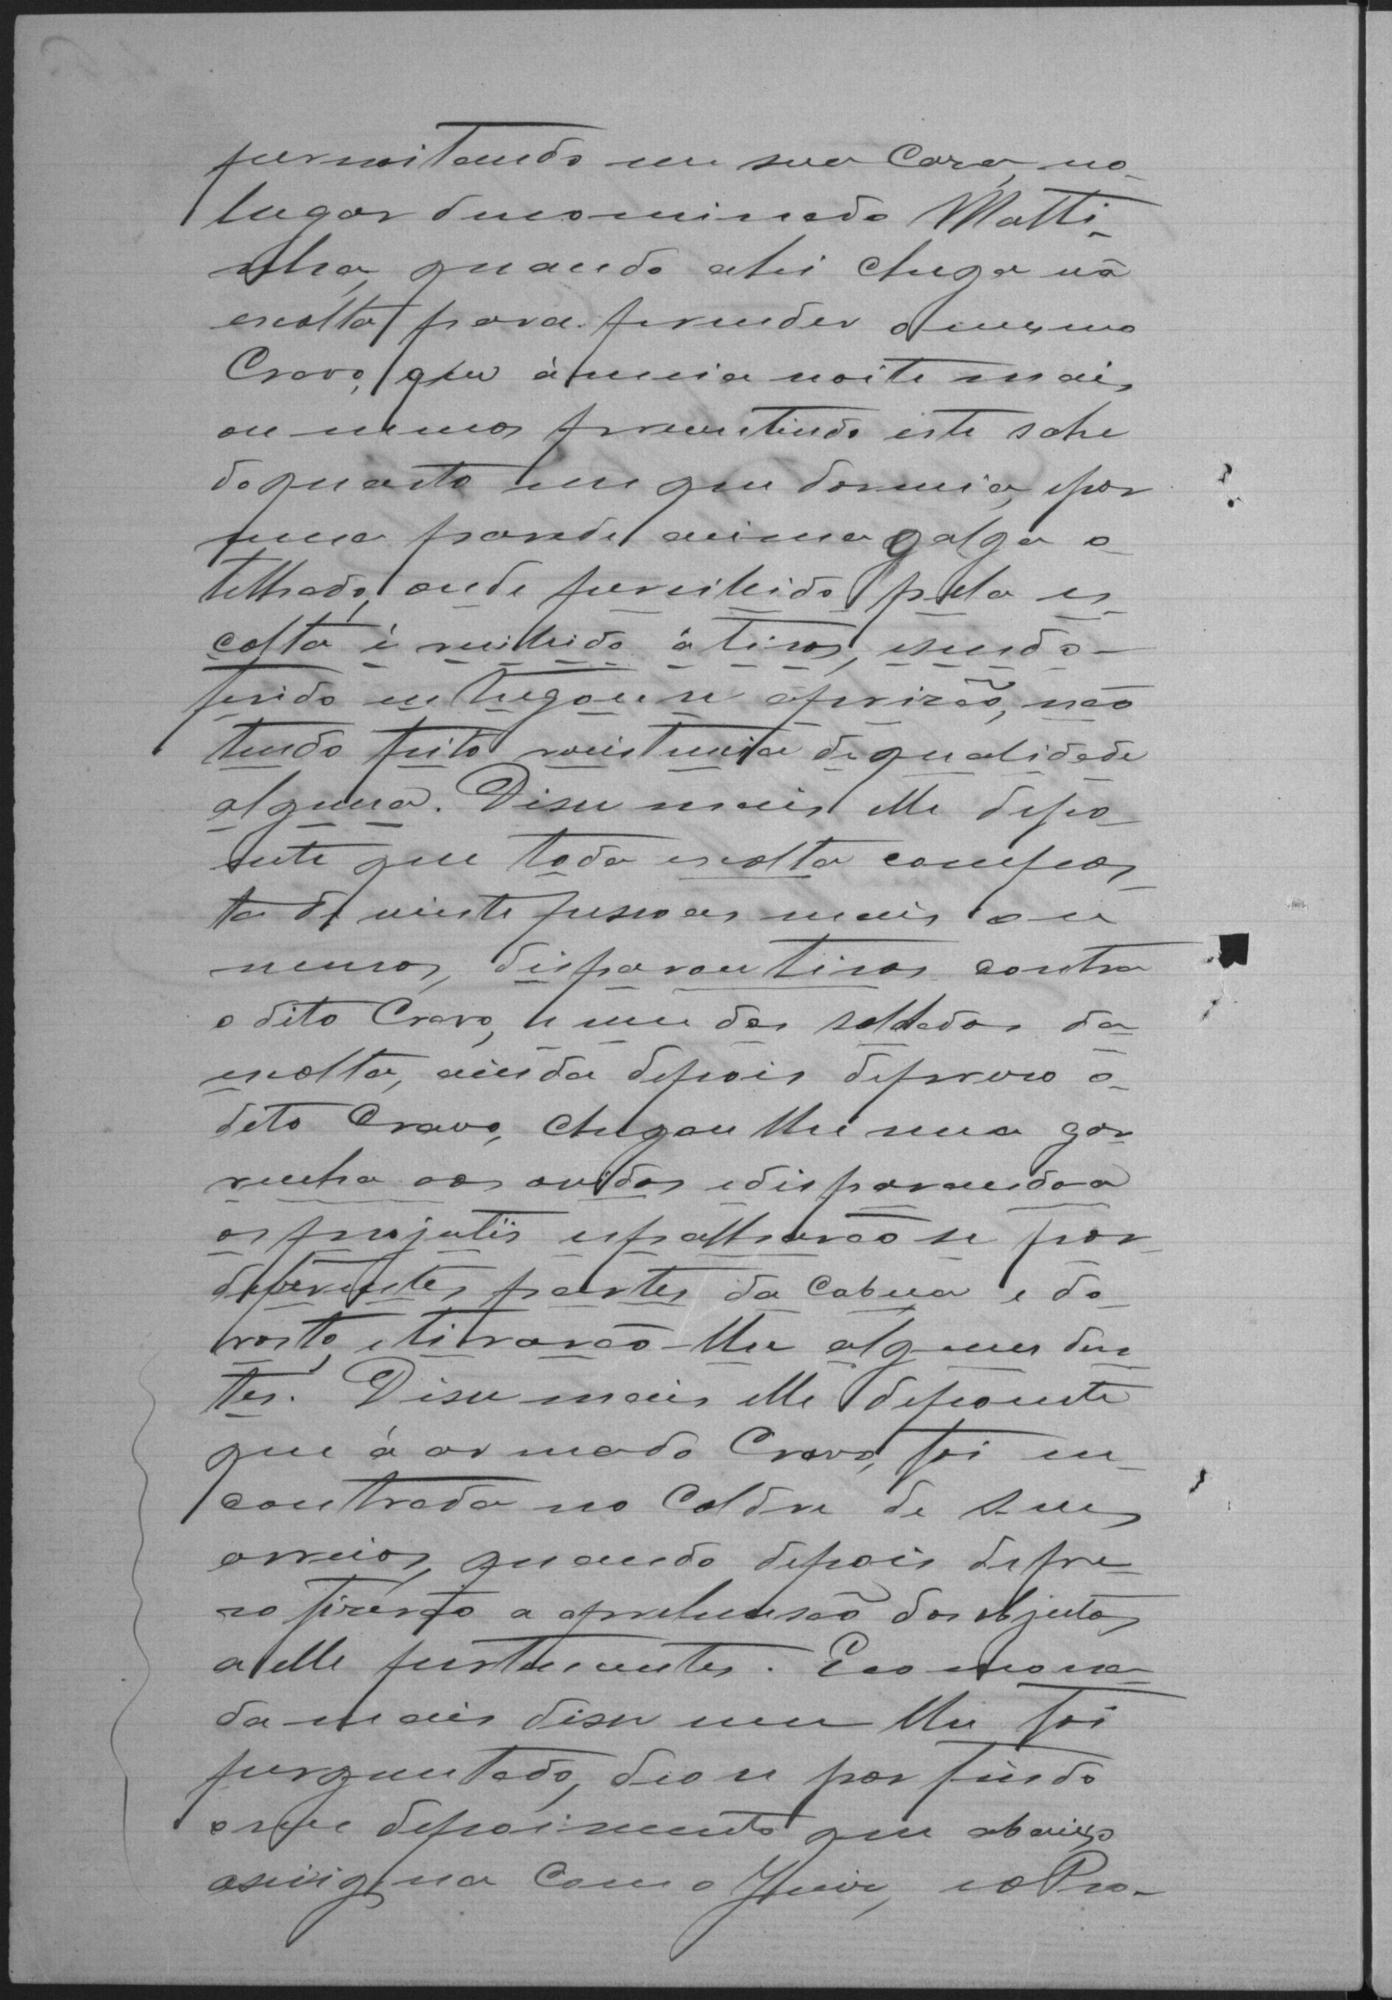 pernoitando em sua Casa, no
lugar denominado Matti-
nha, quando ahi chega uã
escolta para prender o mesmo
Cravo, que à meia noite mais
ou menos presentindo este sahe
do quarto em que dormia, e por
uma parede acima galga o
telhado, onde percebido pela es-
colta é recebido à tiros, e sendo
ferido entregou se a prizão, não
tendo feito resistencia de qualidade
alguma. Disse mais elle depo-
ente que toda escolta compos-
ta de vinte pessoas mais ou
menos, disparou tiros contra
o dito Cravo, e um dos soldados da
escolta, ainda depois de prezo o
dito Cravo, chegou lhe uma gar-
rucha aos ouvidos e disparando a
os projetis espalharão se por
differentes partes da Cabeça e do
rosto, e tirarão-lhe alguns den-
tes. Disse mais elle depoente
que a arma do Cravo, foi en-
contrada no Coldre de seus
arreios, quando depois de pre-
zo fizerão a aprehensão dos objectos
a elle pertencentes. E como na-
da mais disse nem lhe foi
perguntado, deo se por findo
o seu depoimento que abaixo
assigna com o Juiz, e o Pro-